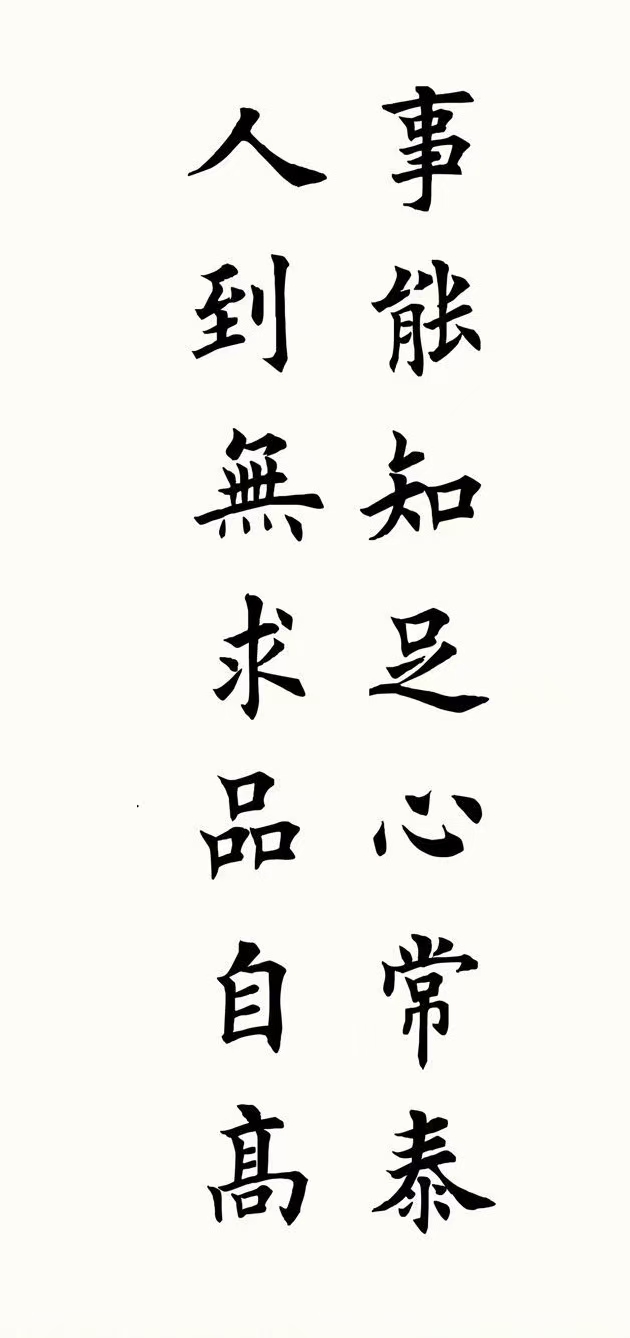 事能知足心常泰
人到無求品自高